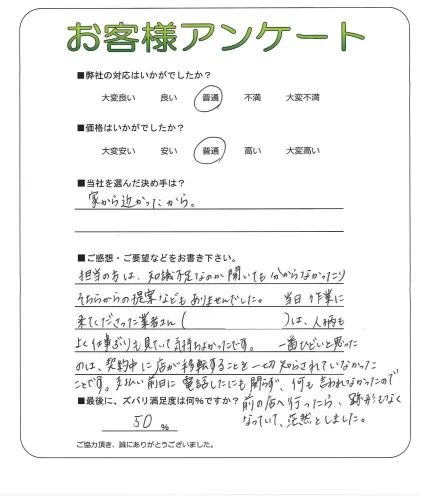 お客様アンケート
■弊社の対応はいかがでしたか?
大変良い 良い 普通 不満 大変不満
■価格はいかがでしたか?
大変安い 安い 普通 高い 大変高い
■当社を選んだ決め手は?
家から近かったから。
■ご感想・ご要望などをお書き下さい。
担当の方は、知識不足なのか聞いても分からなかったり
そちらからの提案などもありませんでした。 当日作業に
来てくださった業者さん( )は、人柄も
よく仕事ぶりも見ていて気持ちよかったです。 一番ひどいと思った
のは、契約中に店が移転することを一切知らされていなかった
ことです。支払い前日に電話したにも関らず、何も言われなかったので
前の店へ行ったら、跡形もなく
なっていて、茫然としました。
■最後に、ズバリ満足度は何%ですか?
50 %
ご協力頂き、誠にありがとうございました。